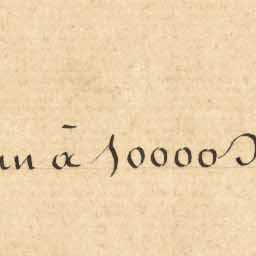 un à 10000